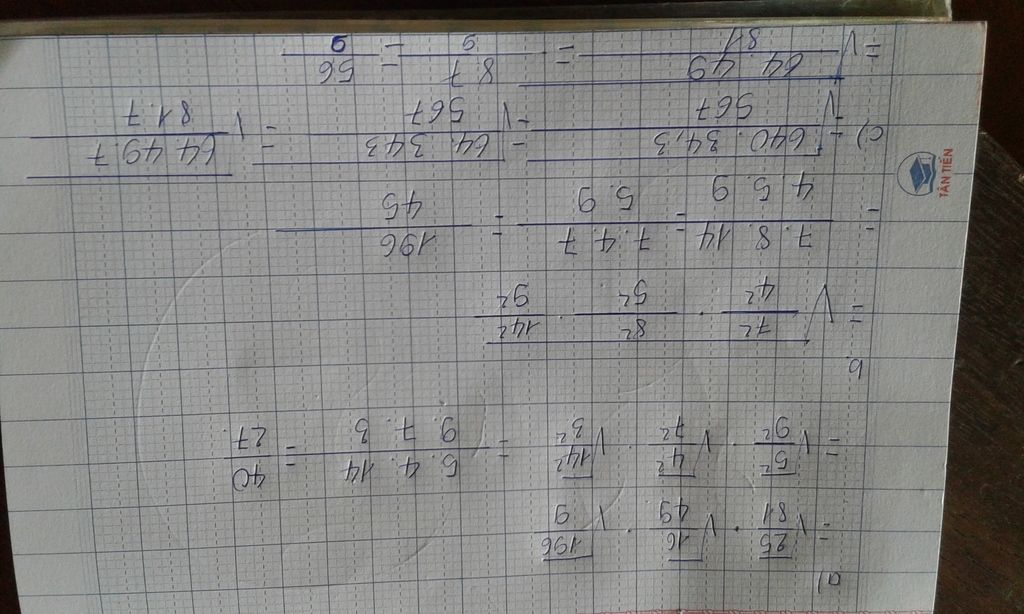 a)
= √25/81 . √16/49 . √196/9
= √5²/9² . √4²/7² . √14²/3² = 5. 4. 14/9. 7. 3 = 40/27
b.
= √7²/4² . 8²/5² . 14²/9²
= 7. 8. 14/4. 5. 9 = 7. 4. 7/5. 9 = 196/45
c) = √640. 34,3/567 = √64. 343/567 = √64. 49. 7/81. 7
= √64. 49/81 = 8 7/9 = 56/9
TÂN TIẾN